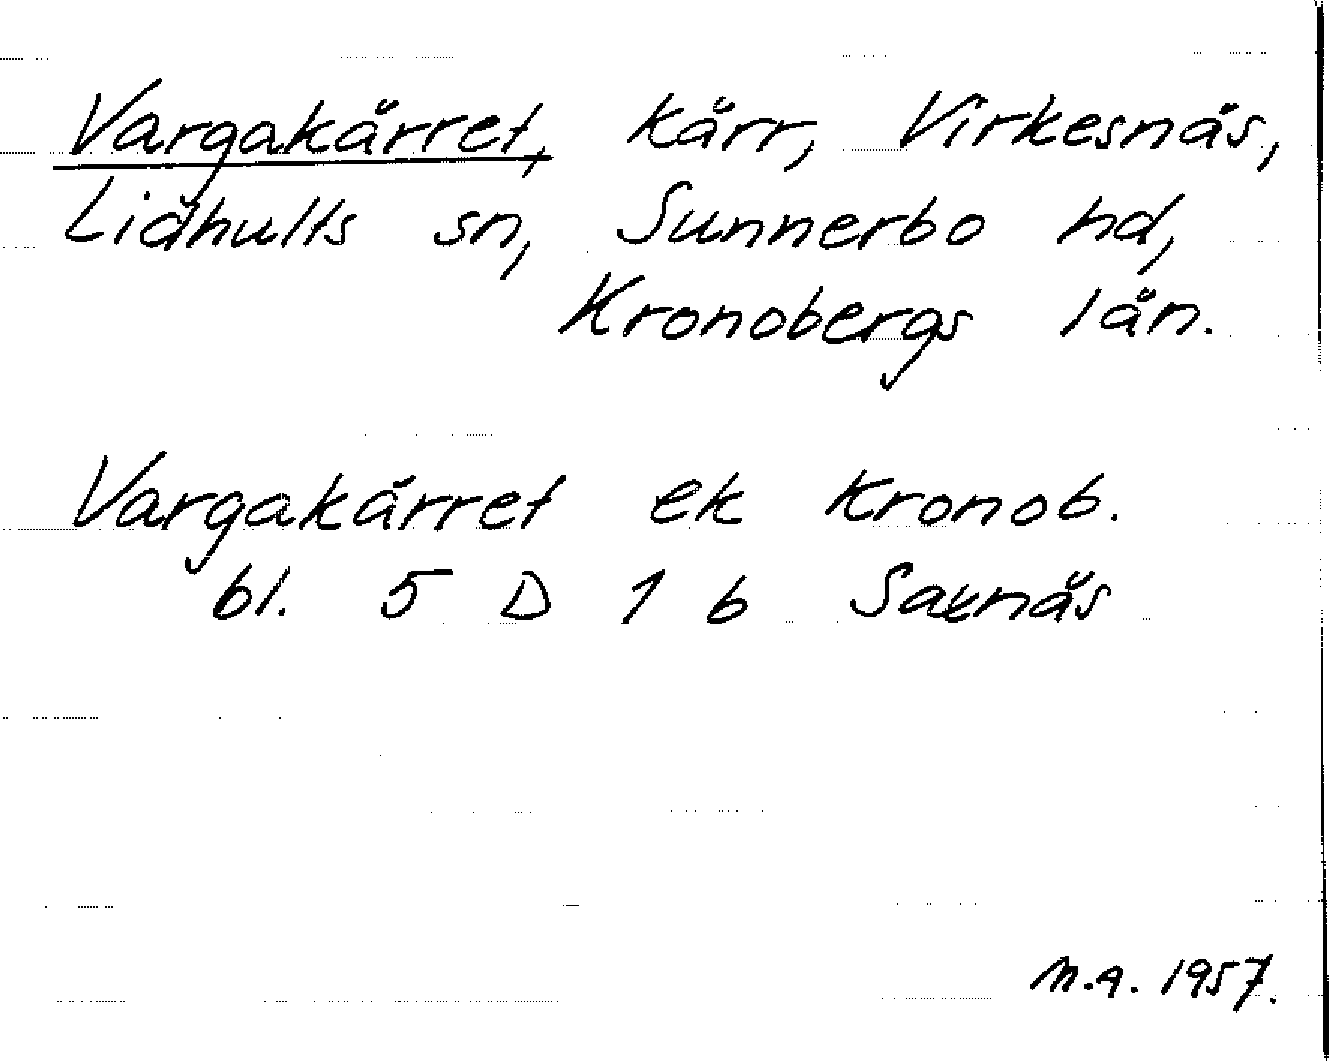 Vargakärret, kärr, Virkesnäs,
Lidhults sn, Sunnerbo hd,
Kronobergs län.
Vargakärret ek Kronob.
bl. 5 D 1 b Saxnäs
M.A. 1957.